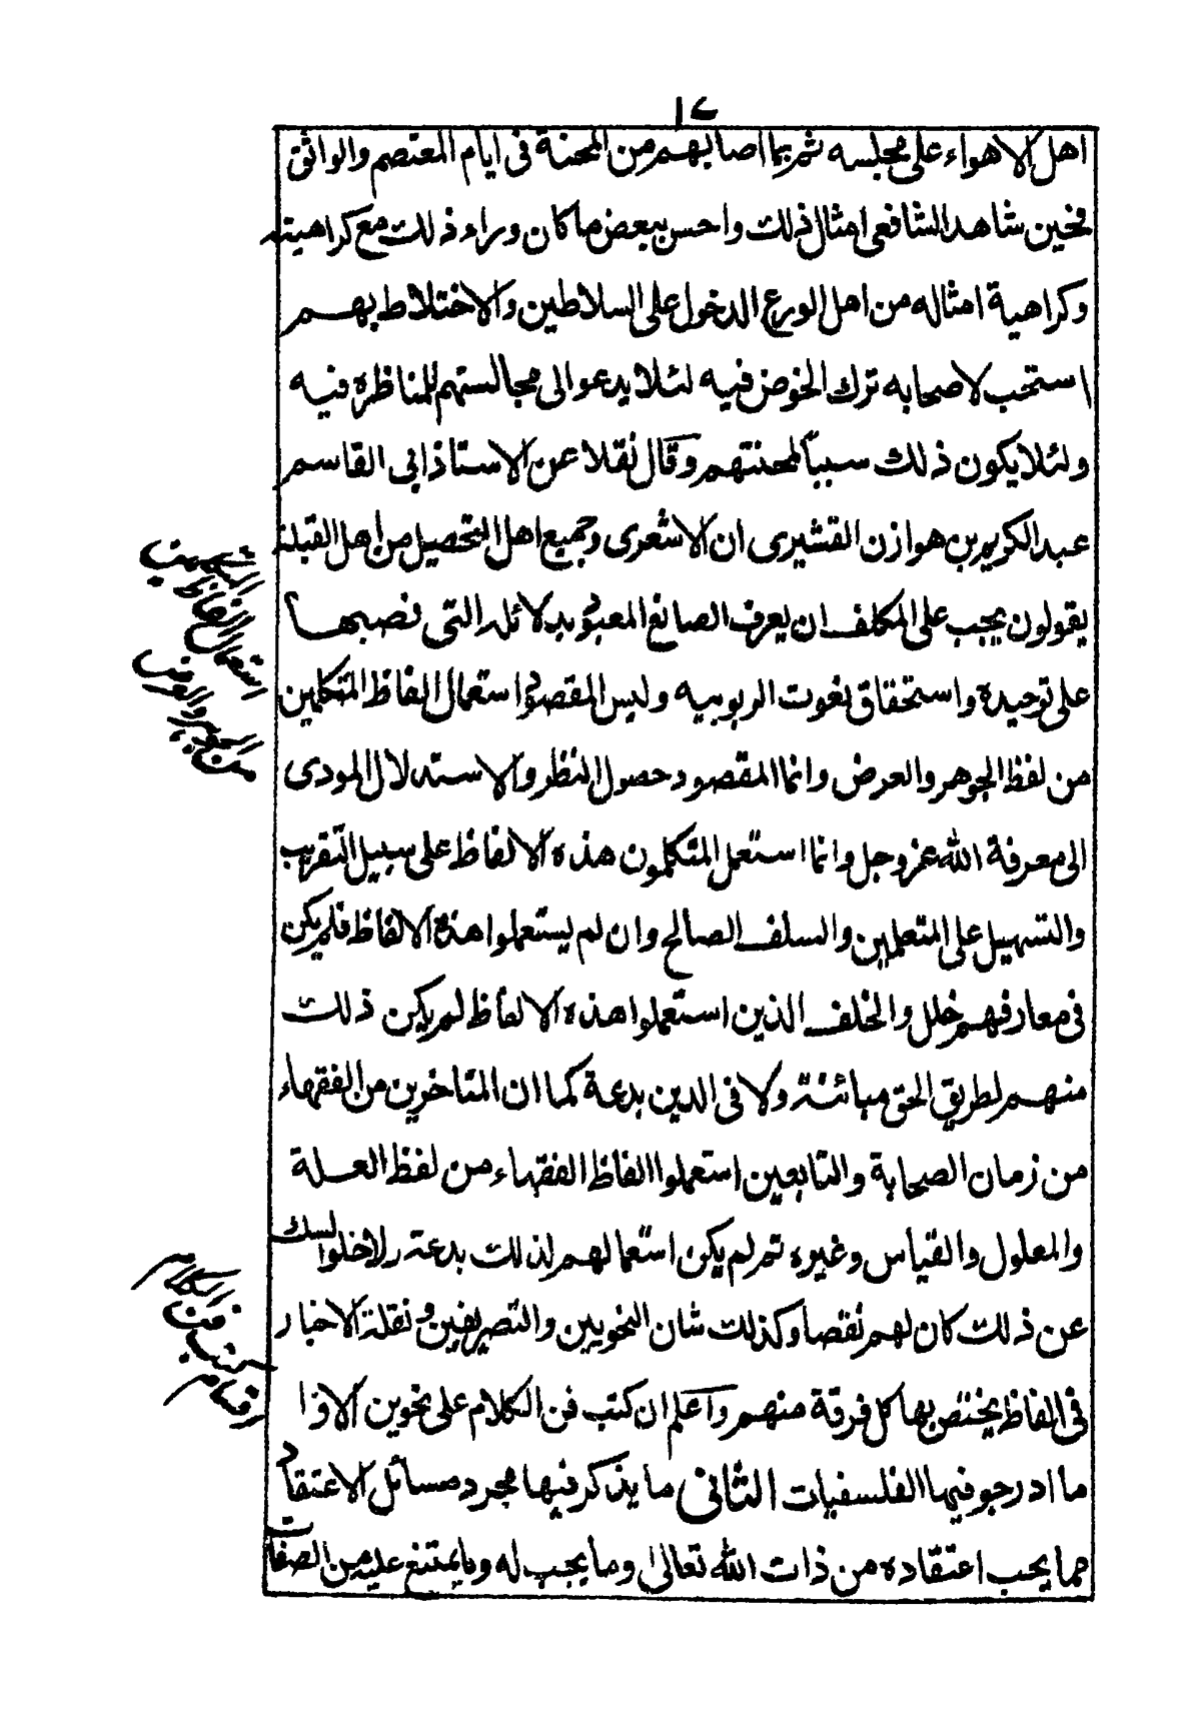 ١٧
اهل الاهواء على مجلسه ثم بما اصابهم من المحنة فى ايام المعتصم والواثق
فحين شاهد الشافعى امثال ذلك واحس ببعض ما كان وراء ذلك مع كراهيته
وكراهية امثاله من اهل الورع الدخول على السلاطين والاختلاط بهم
استحب لاصحابه ترك الخوض فيه لئلا يدعو الى مجالستهم للمناظرة فيه
ولئلا يكون ذلك سبباً لمحنتهم وقال نقلا عن الاستاذ ابى القاسم
عبد الكريم بن هوازن القشيرى ان الاشعرى وجميع اهل التحصيل من اهل القبلة
يقولون يجب على المكلف ان يعرف الصانع المعبود بدلائله التى نصبها
على توحيده واستحقاق نعوت الربوبيه وليس المقصود استعمال الفاظ المتكلمين
من لفظ الجوهر والعرض وانما المقصود حصول النظر والاستدلال المودى
الى معرفة الله عز وجل وانما استعمل المتكلمون هذه الالفاظ على سبيل التقريب
والتسهيل على المتعلمين والسلف الصالح وان لم يستعملوا هذه الالفاظ فلم يكن
فى معارفهم خلل والخلف الذين استعملوا هذه الالفاظ لم يكن ذلك
منهم لطريق الحق مبائنة ولا فى الدين بدعة كما ان المتاخرين من الفقهاء
من زمان الصحابة والتابعين استعملوا الفاظ الفقهاء من لفظ العلة
والمعلول والقياس وغيره ثم لم يكن استعمالهم لذلك بدعة ولا خلوا لسلف
عن ذلك كان لهم نقصا وكذلك شان النحويين والتصريفين ونقلة الاخبار
فى الفاظ يختص بها كل فرقة منهم واعلم ان كتب فن الكلام على نحوين الاول
ما ادرجو فيها الفلسفيات الثانى ما يذكر فيها مجرد مسائل الاعتقاد
مما يجب اعتقاده من ذات الله تعالى وما يجب له وما يمتنع عليه من الصفات
استعمال الفاظ
من الجوهر والعرض
اقسام
كتب فن
الكلام